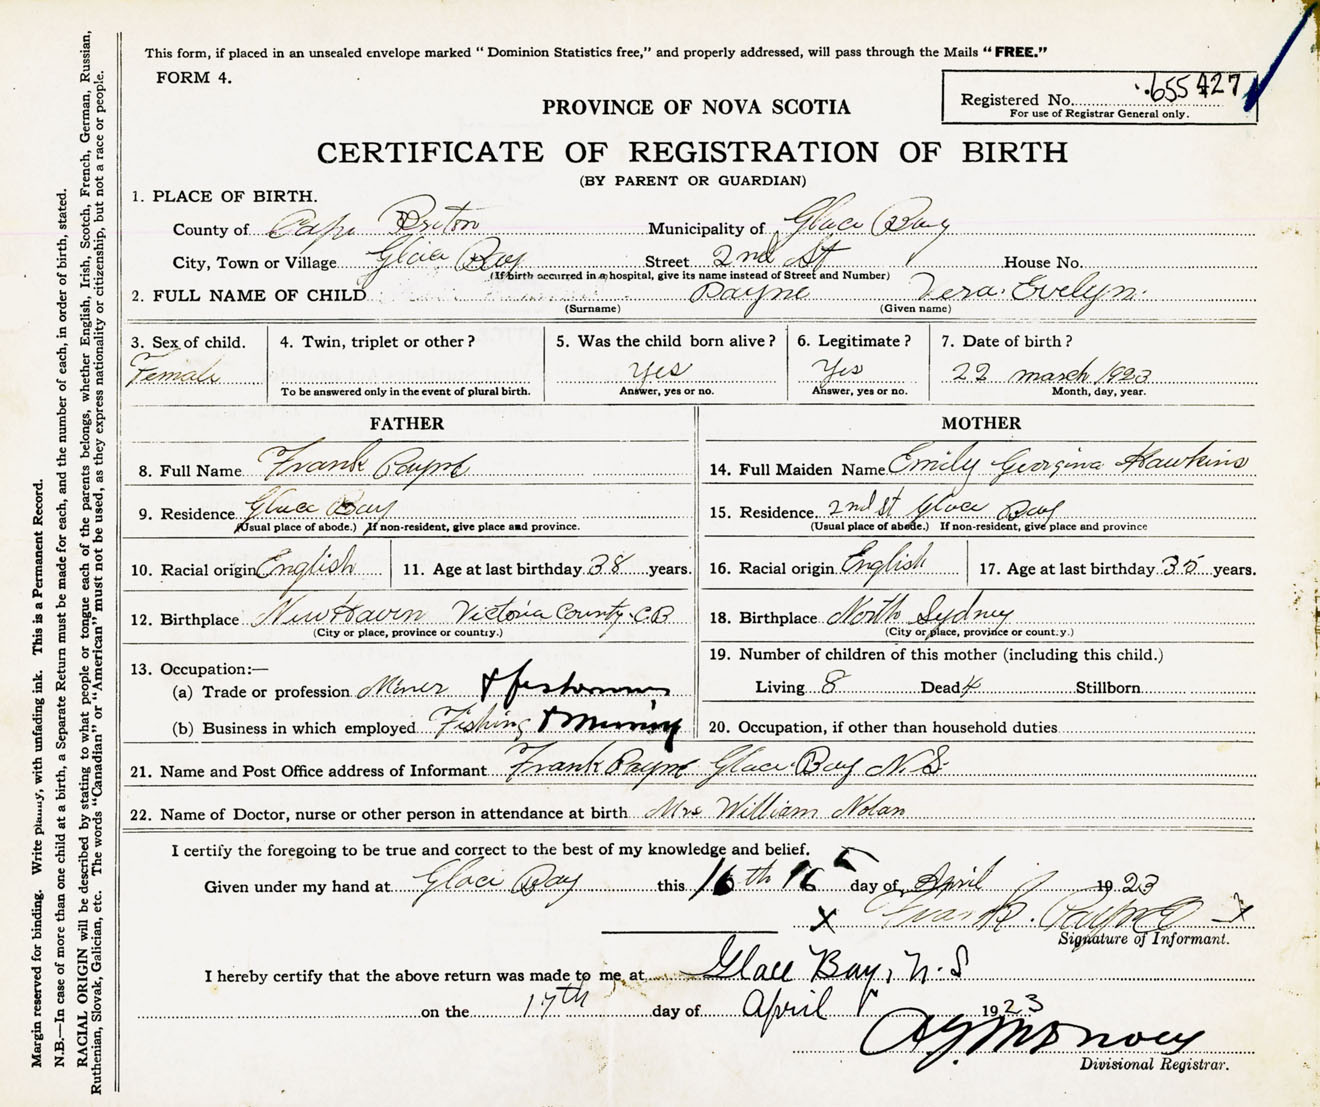 This form, if placed in an unsealed envelope marked "Dominion Statistics free," and properly addressed, will pass through the Mails "FREE."
FORM 4.
Registered No. 655427
For use of Registrar General only.
PROVINCE OF NOVA SCOTIA
CERTIFICATE OF REGISTRATION OF BIRTH
(BY PARENT OR GUARDIAN)
1. PLACE OF BIRTH.
County of Cape Breton Municipality of Glace Bay
City, Town or Village Glace Bay Street 2nd St House No.
(If birth occurred in a hospital, give its name instead of Street and Number)
2. FULL NAME OF CHILD Payne Vera Evelyn
(Surname) (Given name)
3. Sex of child. 4. Twin, triplet or other? 5. Was the child born alive? 6. Legitimate? 7. Date of birth?
Female Yes Yes 22 march 1923
To be answered only in the event of plural birth. Answer, yes or no. Answer, yes or no. Month, day, year.
FATHER MOTHER
8. Full Name Frank Payne 14. Full Maiden Name Emily Georgina Hawkins
9. Residence Glace Bay 15. Residence 2nd st Glace Bay
(Usual place of abode.) If non-resident, give place and province. (Usual place of abode.) If non-resident, give place and province
10. Racial origin English 11. Age at last birthday 38 years. 16. Racial origin English 17. Age at last birthday 35 years.
12. Birthplace New Haven Victoria County C.B 18. Birthplace North Sydney
(City or place, province or country.) (City or place, province or country.)
13. Occupation:— 19. Number of children of this mother (including this child.)
(a) Trade or profession Miner & fisherman Living 8 Dead 4 Stillborn
(b) Business in which employed Fishing & Mining 20. Occupation, if other than household duties
21. Name and Post Office address of Informant Frank Payne Glace Bay N.S.
22. Name of Doctor, nurse or other person in attendance at birth Mrs William Nolan
I certify the foregoing to be true and correct to the best of my knowledge and belief.
Given under my hand at Glace Bay this 16th 16 day of April 1923
X Frank Payne X
Signature of Informant.
I hereby certify that the above return was made to me at Glace Bay, N.S
on the 17th day of April 1923
Divisional Registrar.
Margin reserved for binding. Write plainly, with unfading ink. This is a Permanent Record.
N.B.—In case of more than one child at a birth, a Separate Return must be made for each, and the number of each, in order of birth, stated.
RACIAL ORIGIN will be described by stating to what people or tongue each of the parents belongs, whether English, Irish, Scotch, French, German, Russian,
Ruthenian, Slovak, Galician, etc. The words "Canadian" or "American" must not be used, as they express nationality or citizenship, but not a race or people.